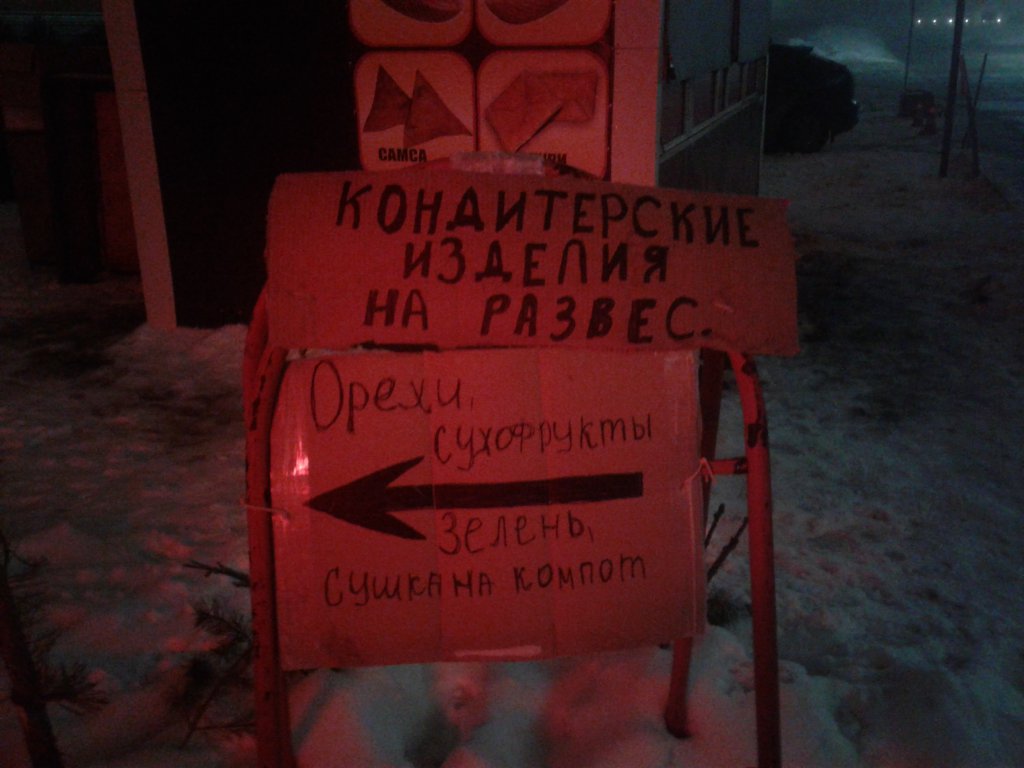 САМСА
КОНДИТЕРСКИЕ
ИЗДЕЛИЯ
НА РАЗВЕС.
Орехи,
сухофрукты
Зелень,
сушка на компот